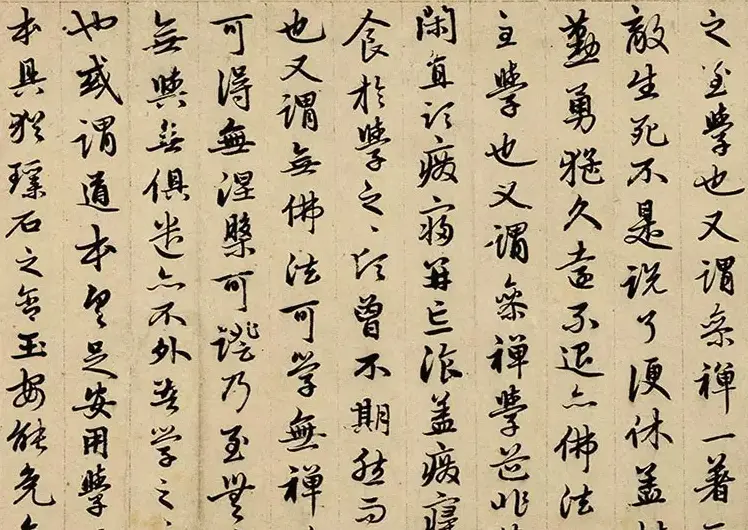 之至學也又謂參禪一著
敵生死不是說了便休蓋
勤勇雖久遠不退亦佛法
主學也又謂參禪學道非
閑直須癈寢并忘湌蓋癈寢
食於學之之頃曾不期然而
也又謂無佛法可學無禪
可得無涅槃可證乃至無
無與無俱遣亦不外吾學之
也或謂道本具足安用學
本具猶璞石之含玉安能免